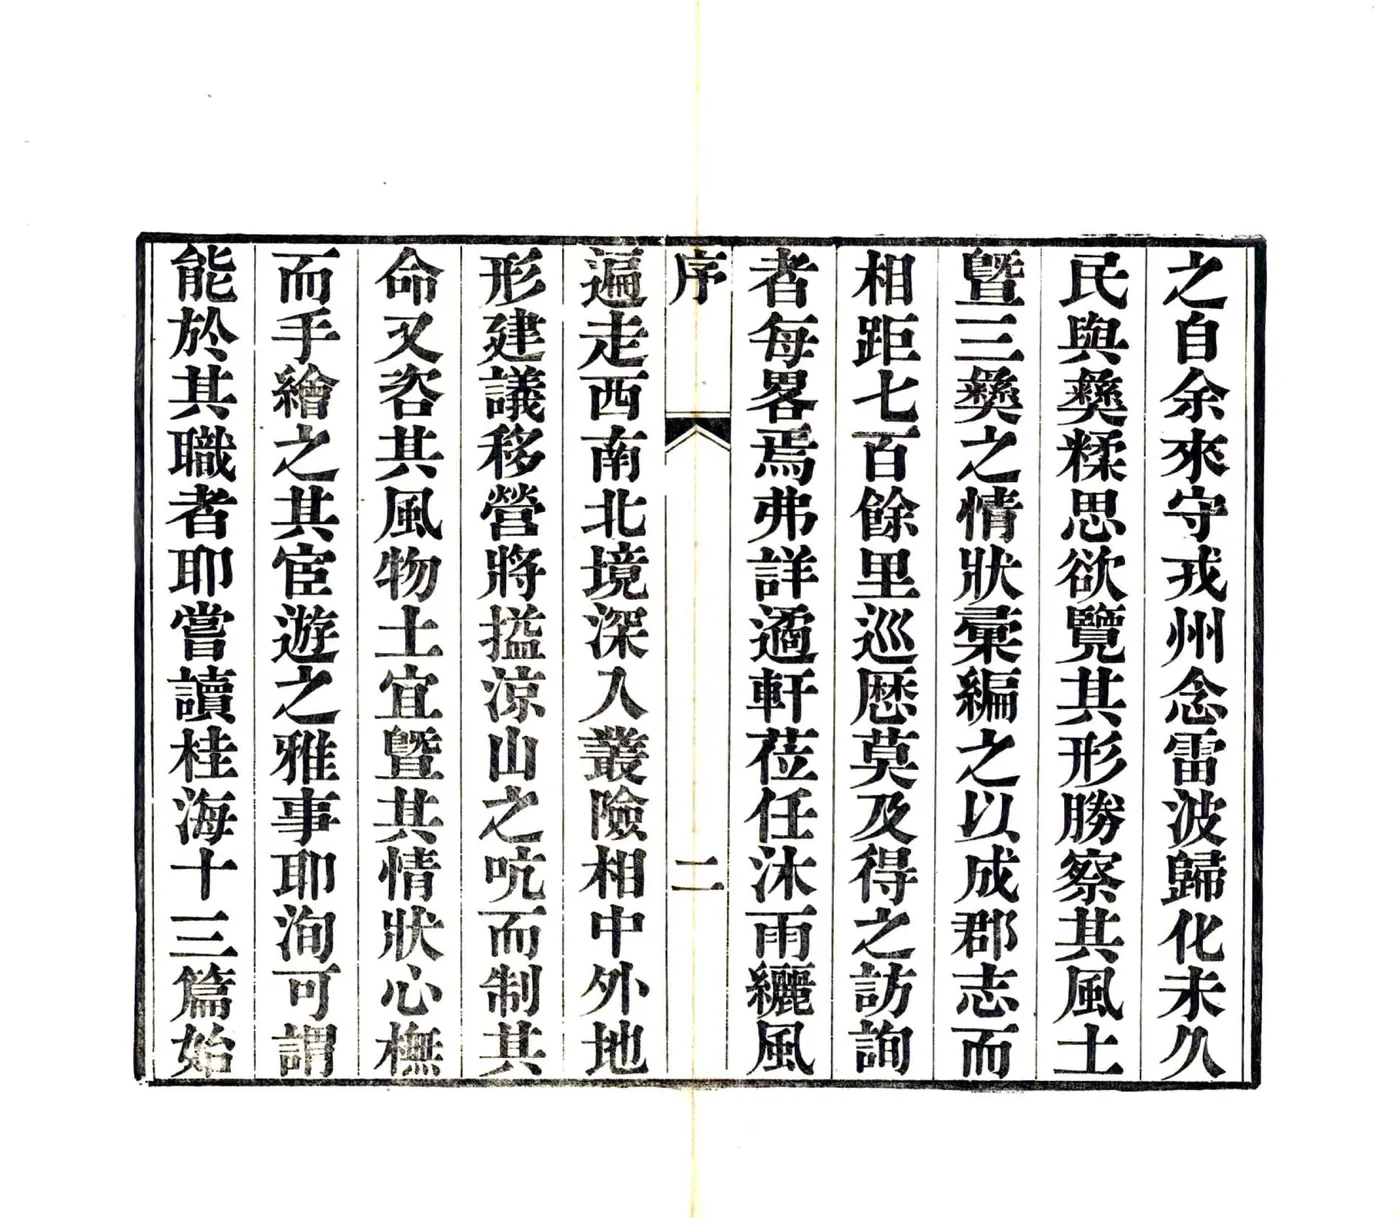 之自余來守戎州念雷波歸化未久
民與彞糅思欲覽其形勝察其風土
曁三彞之情狀彙編之以成郡志而
相距七百餘里巡歴莫及得之訪詢
者每畧焉弗詳適軒莅任沐雨纚風
序
二
遍走西南北境深入叢險相中外地
形建議移營將搤涼山之吭而制其
命又咨其風物土宜曁其情狀心橅
而手繪之其宦遊之雅事耶洵可謂
能於其職者耶嘗讀桂海十三篇始